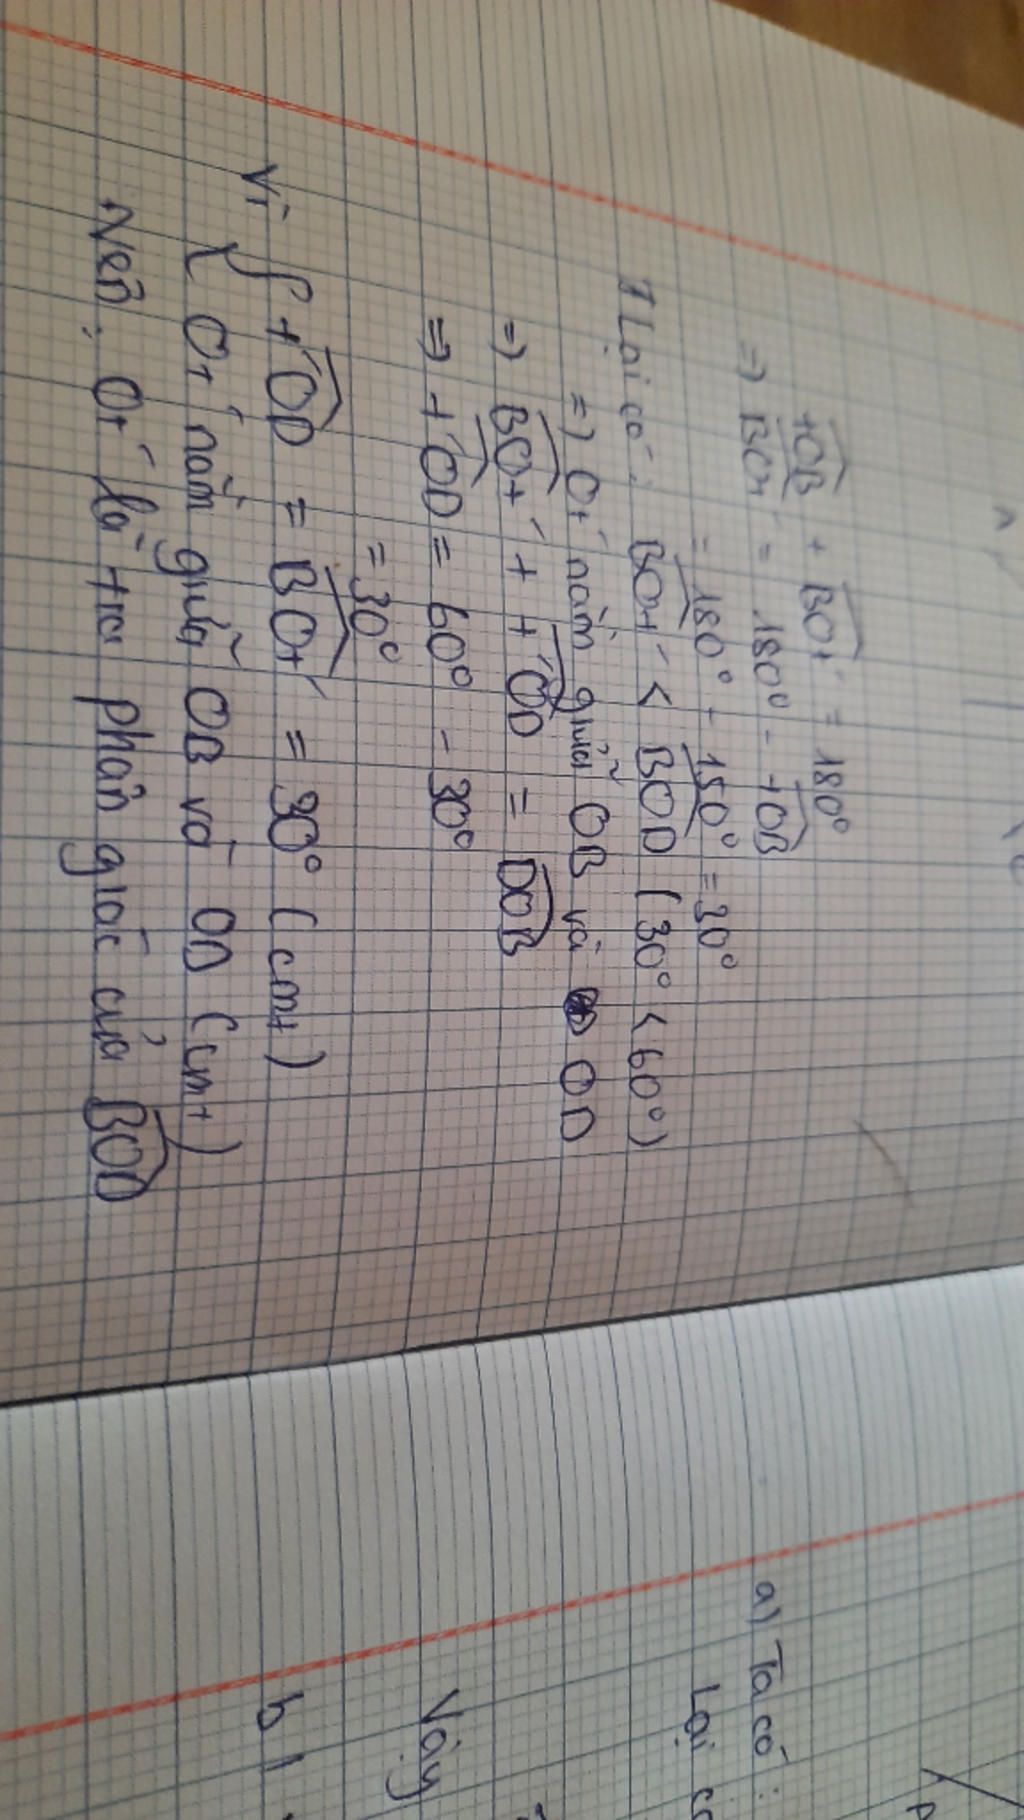 tOB + BOt' = 180°
=> BOt' = 180° - tOB
= 180° - 150° = 30°
Lại có: BOt' < BOD (30° < 60°)
=> Ot' nằm giữa OB và OD
=> BOt' + t'OD = DOB
=> t'OD = 60° - 30°
= 30°
Vì { t'OD = BOt' = 30° (cmt)
{ Ot' nằm giữa OB và OD (cmt)
Nên: Ot' là tia phân giác của BOD
a) Ta có:
Lại
Vậy
b)